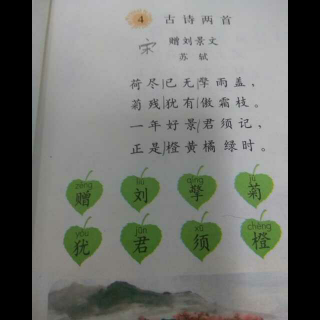 4 古诗两首
宋 赠刘景文
苏轼
荷尽已无擎雨盖，
菊残犹有傲霜枝。
一年好景君须记，
正是橙黄橘绿时。
zèng liú qíng jú
赠 刘 擎 菊
yóu jūn xū chéng
犹 君 须 橙